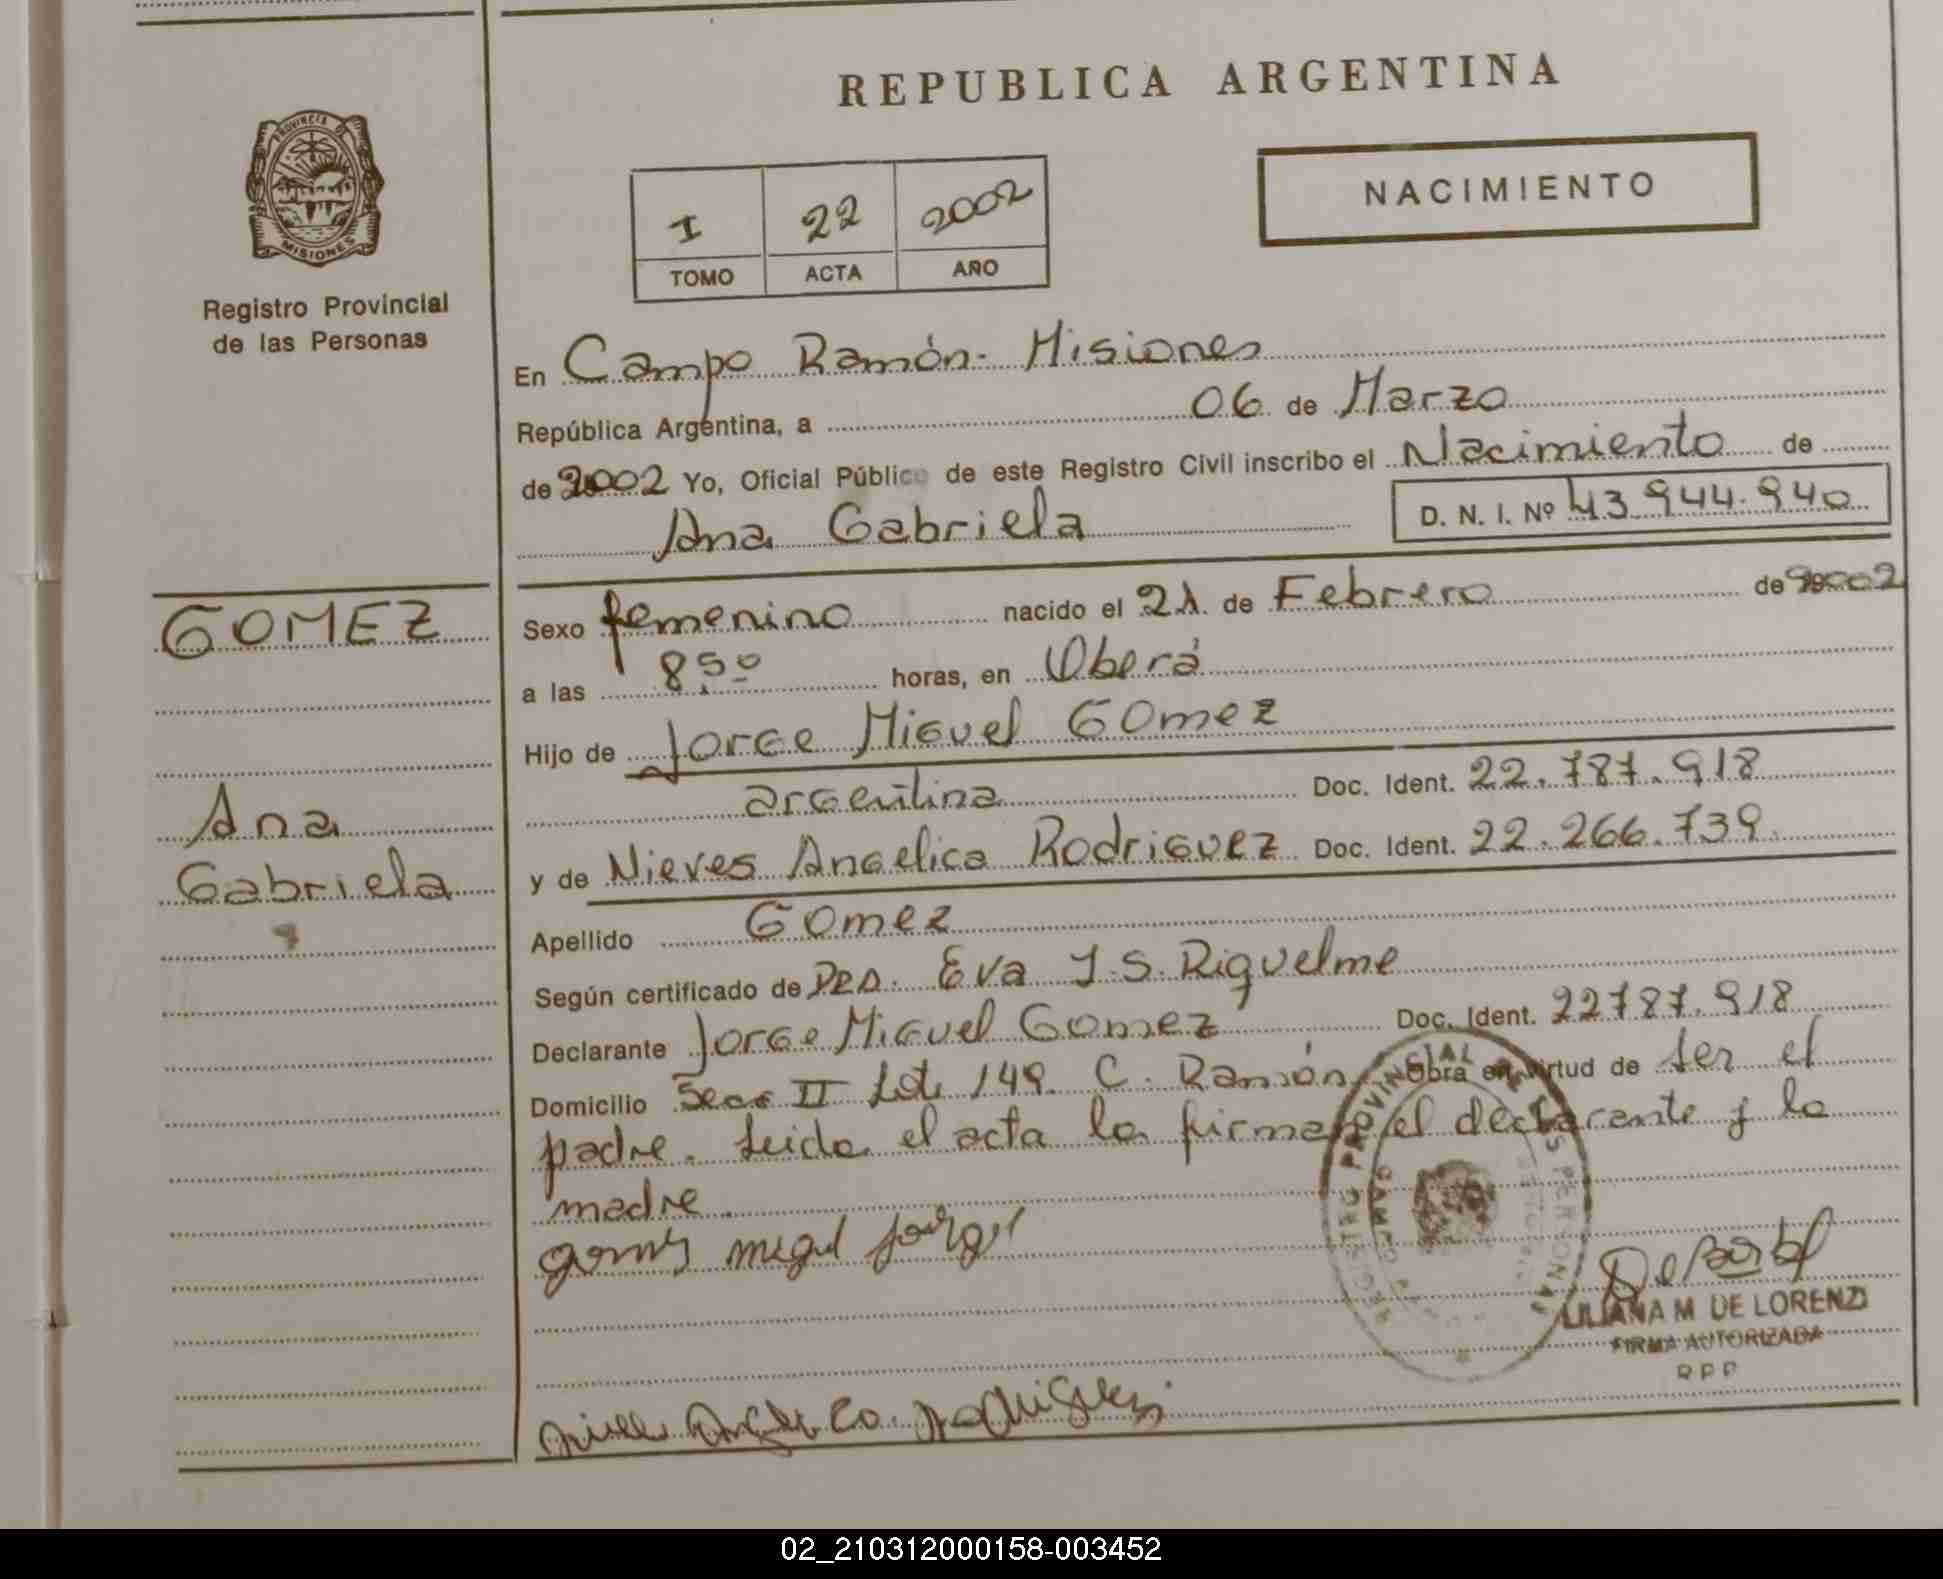 REPUBLICA ARGENTINA
PROVINCIA DE
MISIONES
Registro Provincial
de las Personas
NACIMIENTO
I 22 2002
TOMO ACTA AÑO
En Campo Ramón - Misiones
República Argentina, a 06 de Marzo
de 2002 Yo, Oficial Público de este Registro Civil inscribo el Nacimiento de
Ana Gabriela D. N. I. Nº 43.944.940
GOMEZ
Ana
Gabriela
Sexo femenino nacido el 21 de Febrero de 2002
a las 8 50 horas, en Oberá
Hijo de Jorge Miguel Gomez
argentina Doc. Ident. 22.787.918
y de Nieves Angelica Rodriguez Doc. Ident. 22.266.739
Apellido Gomez
Según certificado de DRA. Eva J. S. Riquelme
Declarante Jorge Miguel Gomez Doc. Ident. 22787.918
Domicilio Secc II Lote 149 C. Ramón Obra en virtud de ser el
padre. Leida el acta la firma el declarante y la
madre.
gomes megel jorge
LILIANA M. DE LORENZI
FIRMA AUTORIZADA
R P P
02_210312000158-003452